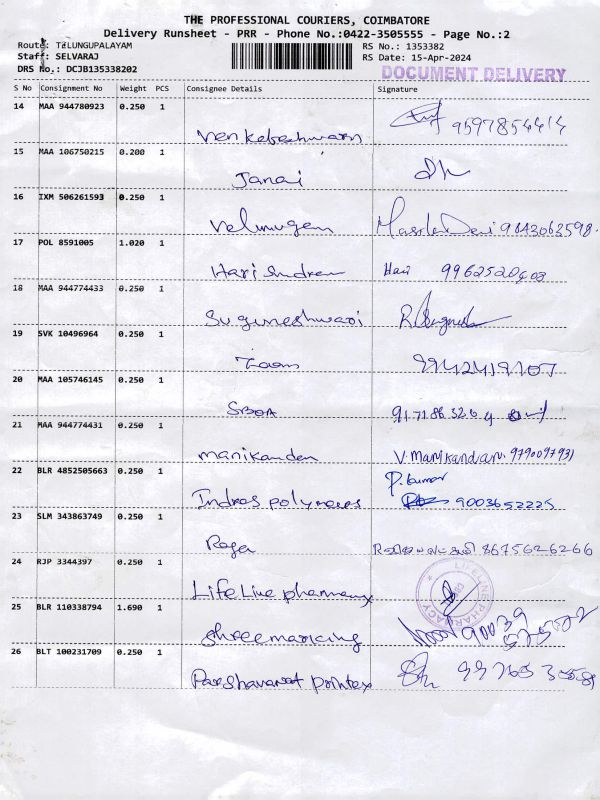 THE PROFESSIONAL COURIERS, COIMBATORE
Delivery Runsheet - PRR - Phone No.:0422-3505555 - Page No.:2
Route: TELUNGUPALAYAM
RS No.: 1353382
Staff: SELVARAJ
RS Date: 15-Apr-2024
DRS No.: DCJB135338202
DOCUMENT DELIVERY
S No Consignment No Weight PCS Consignee Details Signature
14 MAA 944780923 0.250 1
Venkateshwaran 9597854414
15 MAA 106750215 0.200 1
Janai
16 IXM 506261593 0.250 1
Velmurugan 9842062598.
17 POL 8591005 1.020 1
Hari Hari 9962520403
18 MAA 944774433 0.250 1
Suguneshwari
19 SVK 10496964 0.250 1
9942419707
20 MAA 105746145 0.250 1
21 MAA 944774431 0.250 1
Manikandan V. Manikandan. 9790097931
22 BLR 4852505663 0.250 1
P. Kumar
Indras polymares 9003652225
23 SLM 343863749 0.250 1
Raga 8675626266
24 RJP 3344397 0.250 1
Life Line pharmacy
LIFELINE PHARMACY
25 BLR 110338794 1.690 1
Shree 90039
26 BLT 100231709 0.250 1
printex